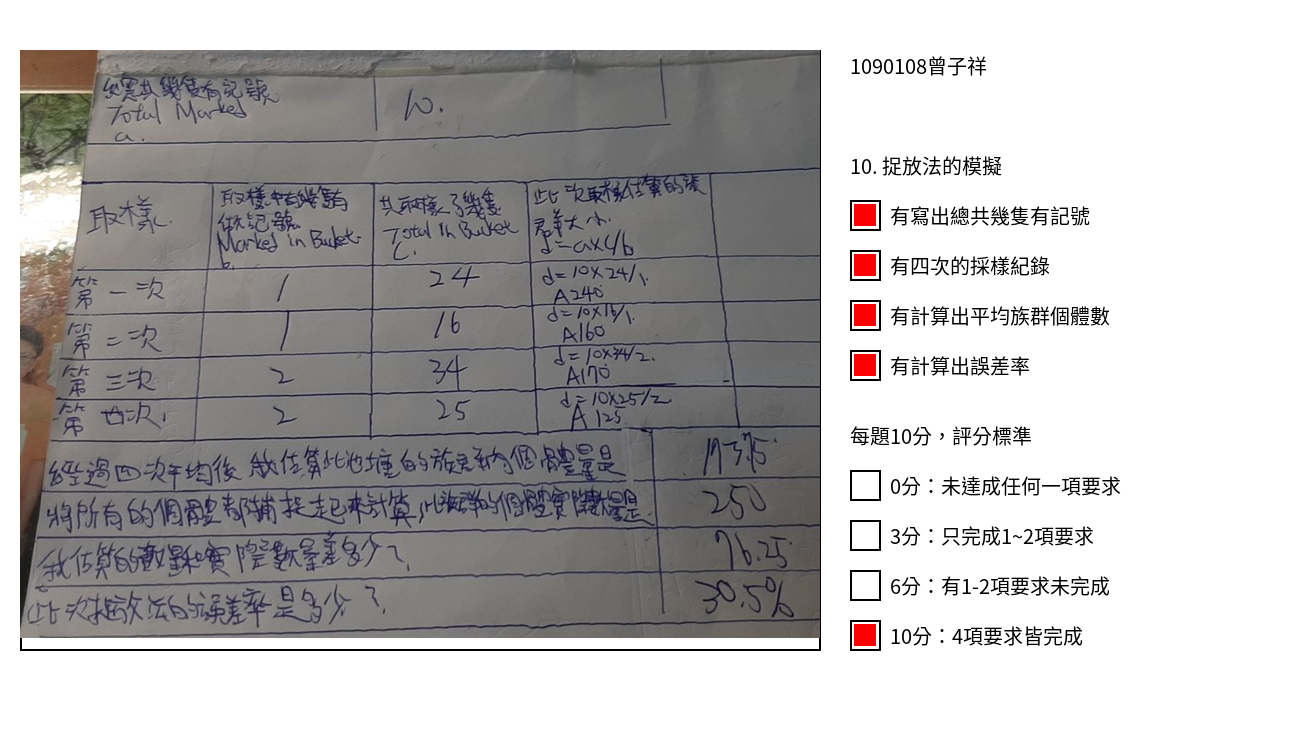 總共幾隻有記號
Total Marked
a.
10.
取樣
取樣中有幾隻有
做記號
Marked in Bucket
b.
共取樣了幾隻
Total In Bucket
C.
此次取樣估算的族
群大小
d=a×c/b
第一次
1
24
d=10×24/1.
A240
第二次
1
16
d=10×16/1.
A160
第三次
2
34
d=10×34/2.
A170
第四次
2
25
d=10×25/2
A 125
經過四次平均後 我估算此池塘的族群個體量是
173.75
將所有的個體都捕捉起來計算,此族群的個體實際數量是
250
我估算的數量和實際數量差多少?
76.25
此次捉放法的誤差率是多少?
30.5%
1090108曾子祥
10. 捉放法的模擬
有寫出總共幾隻有記號
有四次的採樣紀錄
有計算出平均族群個體數
有計算出誤差率
每題10分，評分標準
0分：未達成任何一項要求
3分：只完成1~2項要求
6分：有1-2項要求未完成
10分：4項要求皆完成